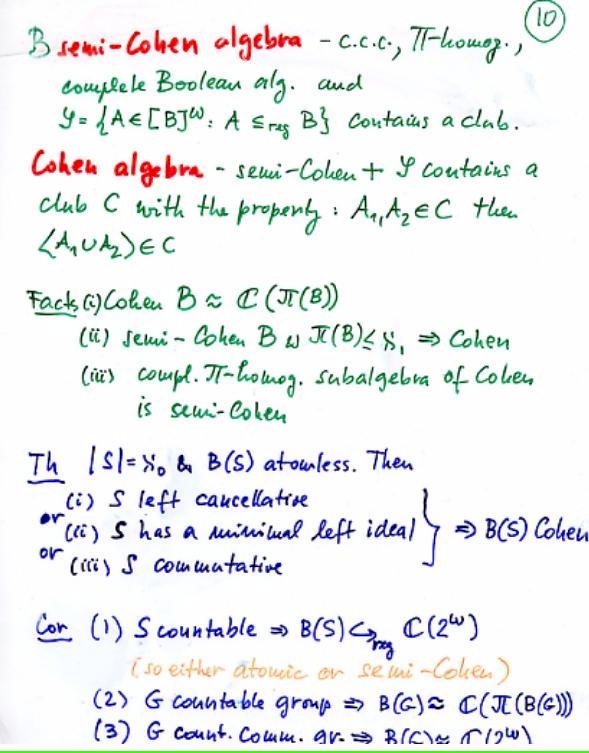 10
B semi-Cohen algebra - c.c.c., π-homog.,
complete Boolean alg. and
𝒮 = {A ∈ [B]^ω : A ≤_reg B} contains a club.
Cohen algebra - semi-Cohen + 𝒮 contains a
club C with the property : A₁, A₂ ∈ C then
⟨A₁ ∪ A₂⟩ ∈ C
Facts (i) Cohen B ≈ ℂ(π(B))
(ii) semi-Cohen B w π(B) ≤ ℵ₁ ⇒ Cohen
(iii) compl. π-homog. subalgebra of Cohen
is semi-Cohen
Th |S| = ℵ₀ & B(S) atomless. Then
(i) S left cancellative
or (ii) S has a minimal left ideal } ⇒ B(S) Cohen
or (iii) S commutative
Cor (1) S countable ⇒ B(S) ↪_reg ℂ(2^ω)
(so either atomic or semi-Cohen)
(2) G countable group ⇒ B(G) ≈ ℂ(π(B(G)))
(3) G count. comm. gr. ⇒ B(G) ≈ ℂ(2^ω)